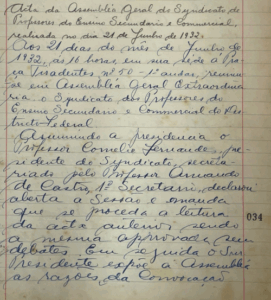 Acta da Assembléa Geral do Syndicato de
Professores do Ensino Secundario e Commercial,
realizada no dia 21 de Junho de 1932.
Aos 21 dias do mês de Junho de
1932, ás 16 horas em sua séde á Pra
ça Tiradentes nº 50 - 1º andar, reuniu
se em Assembléa Geral Extraordina
ria o Syndicato dos Professores do
Ensino Secundario e Commercial do Dis
tricto Federal.
Assumindo a presidencia o
Professor Cornelio Fernandes, pre
sidente do Syndicato, secreta
riado pelo Professor Armando
de Castro, 1º Secretario, declarou
aberta a Sessão e manda
que se proceda a leitura
da acta anterior, sendo
034
a mesma approvada sem
debates. Em seguida o Snr
Presidente expoz á Assembléa
as razões da Convocação